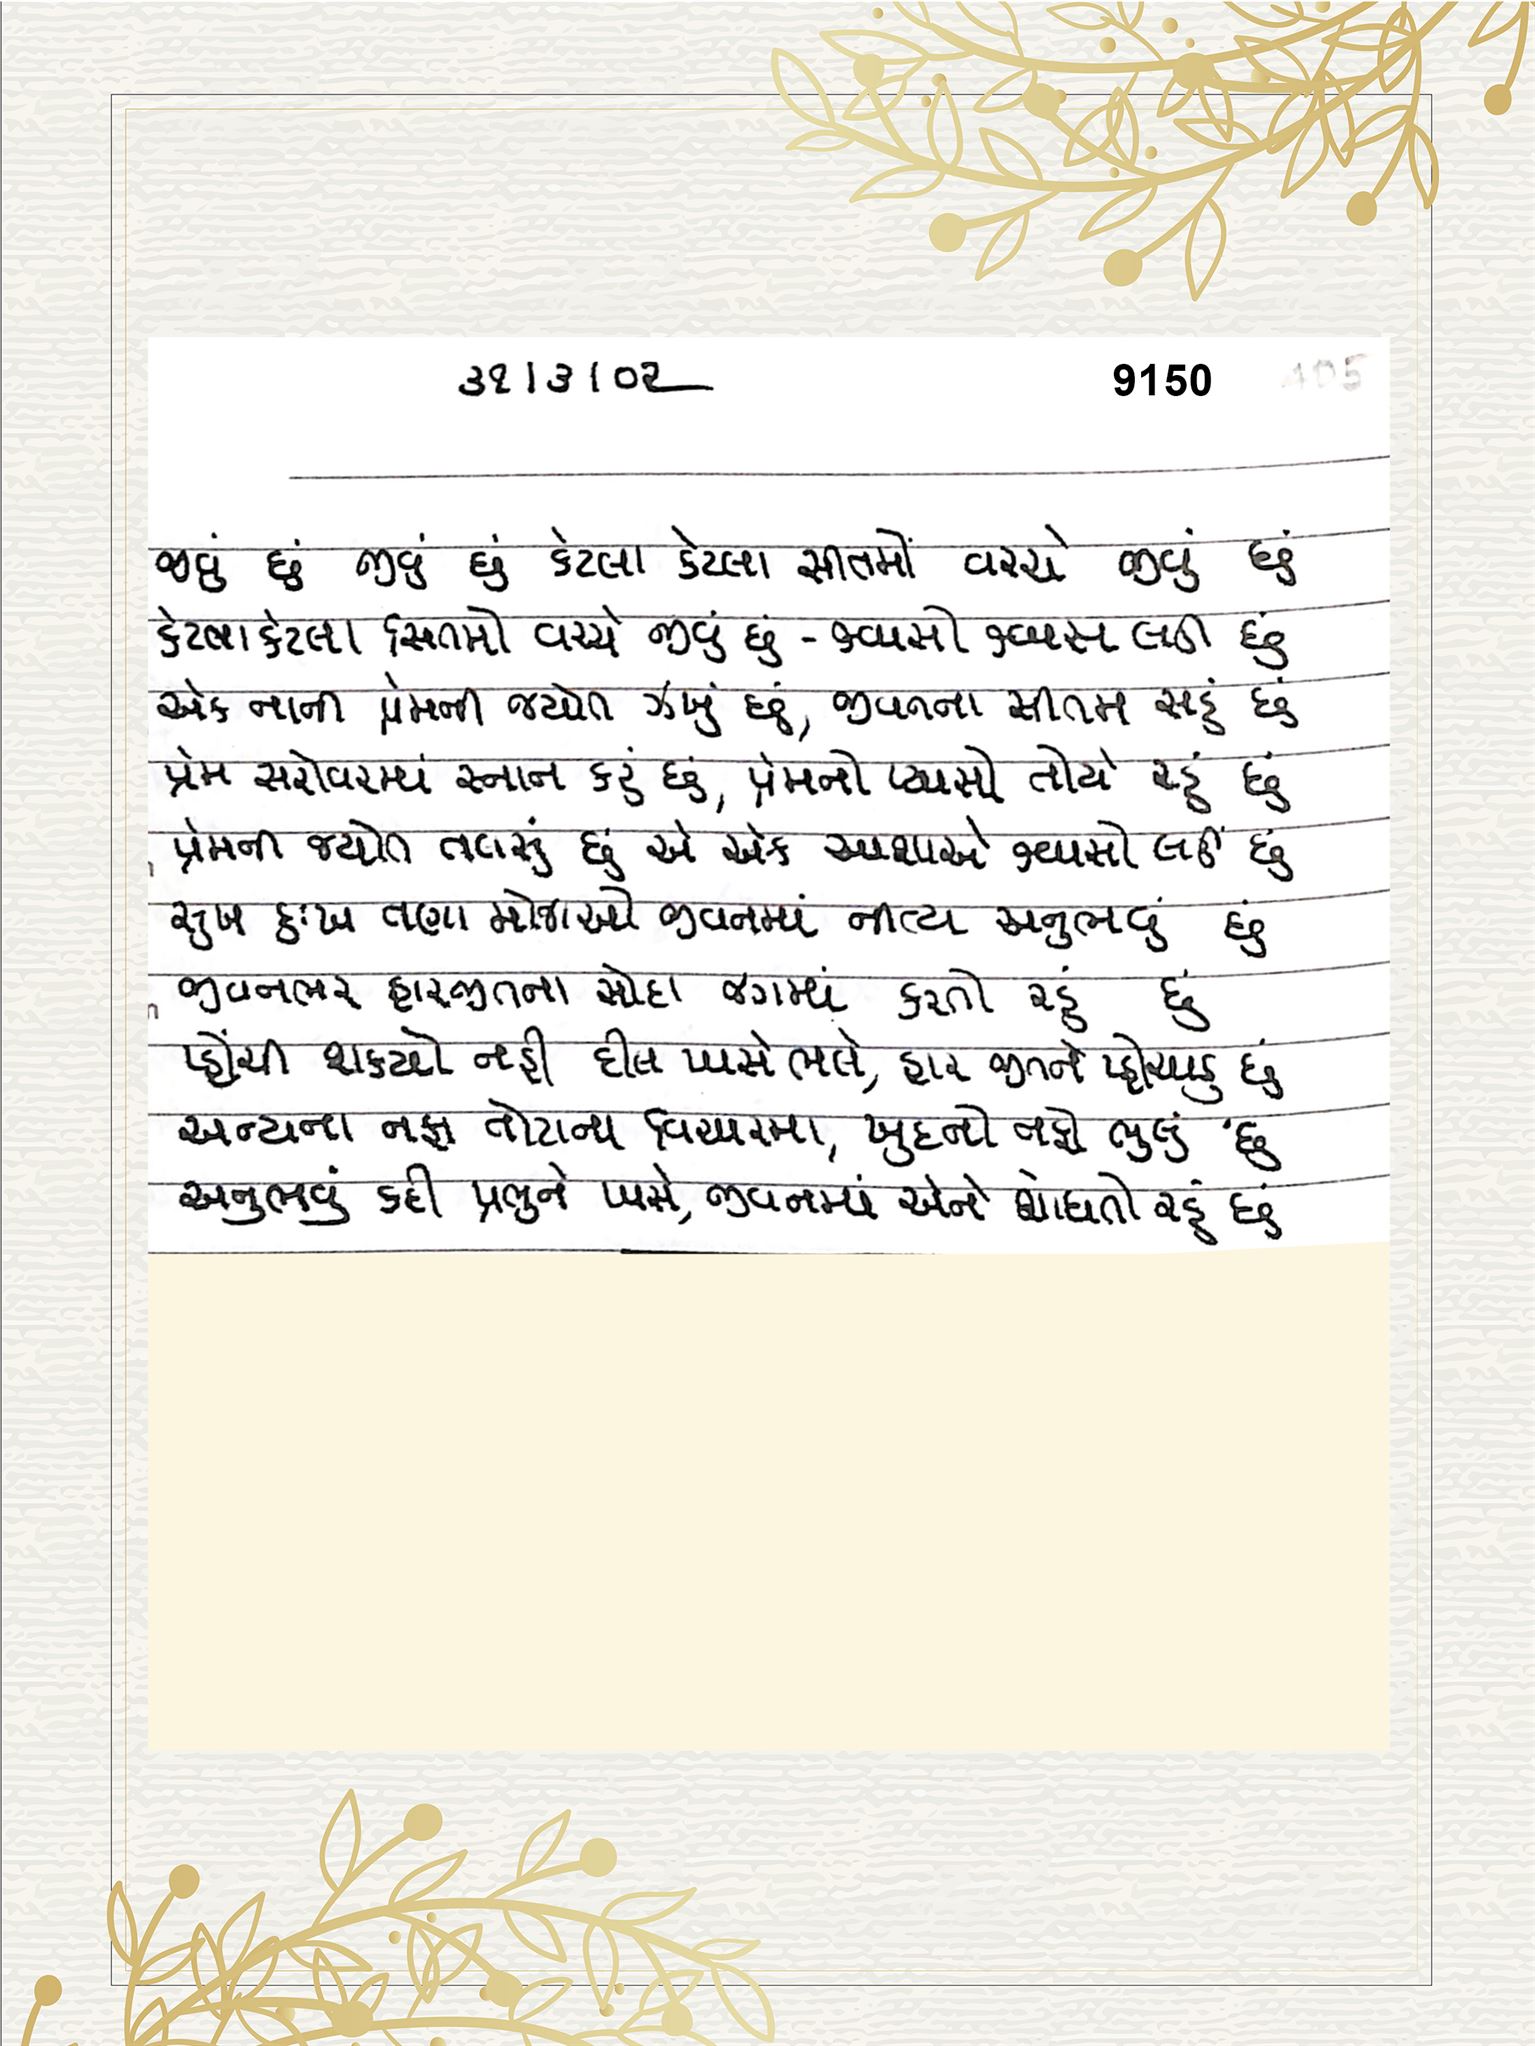 ૩૧/૩/૦૨ 9150 405
જીવું છું જીવું છું કેટલા કેટલા સીતમો વચ્ચે જીવું છું
કેટલા કેટલા સિતમો વચ્ચે જીવું છું - શ્વાસો શ્વાસ લઉં છું
એક નાની પ્રેમની જ્યોત ઝંખું છું, જીવનના સીતમ સહું છું
પ્રેમ સરોવરમાં સ્નાન કરું છું, પ્રેમનો પ્યાસો તોયે રહું છું
પ્રેમની જ્યોત તલસું છું એ એક આશાએ શ્વાસો લઉં છું
સુખ દુઃખ તણા મોજાઓ જીવનમાં નીત્ય અનુભવું છું
જીવનભર હારજીતના સોદા જગમાં કરતો રહું છું
પ્હોંચી શક્યો નહી દીલ પાસે ભલે, હાર જીતને પ્હોચાડુ છું
અન્યના નફા તોટાના વિચારમા, ખુદનો નફો ભુલું છું
અનુભવું કદી પ્રભુને પાસે, જીવનમાં એને શોધતો રહું છું